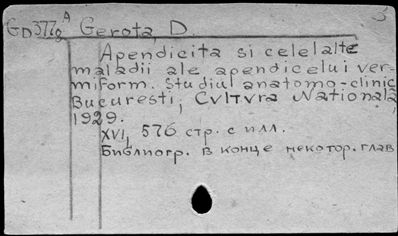 GD377g A Gerota, D. 3
Apendicita si celelalte
maladii ale apendicelui ver-
miform. Studiul anatomo-clinic
Bucuresti, Cvltvra Natională,
1929.
XVI, 576 стр. с илл.
Библиогр. в конце некотор. глав